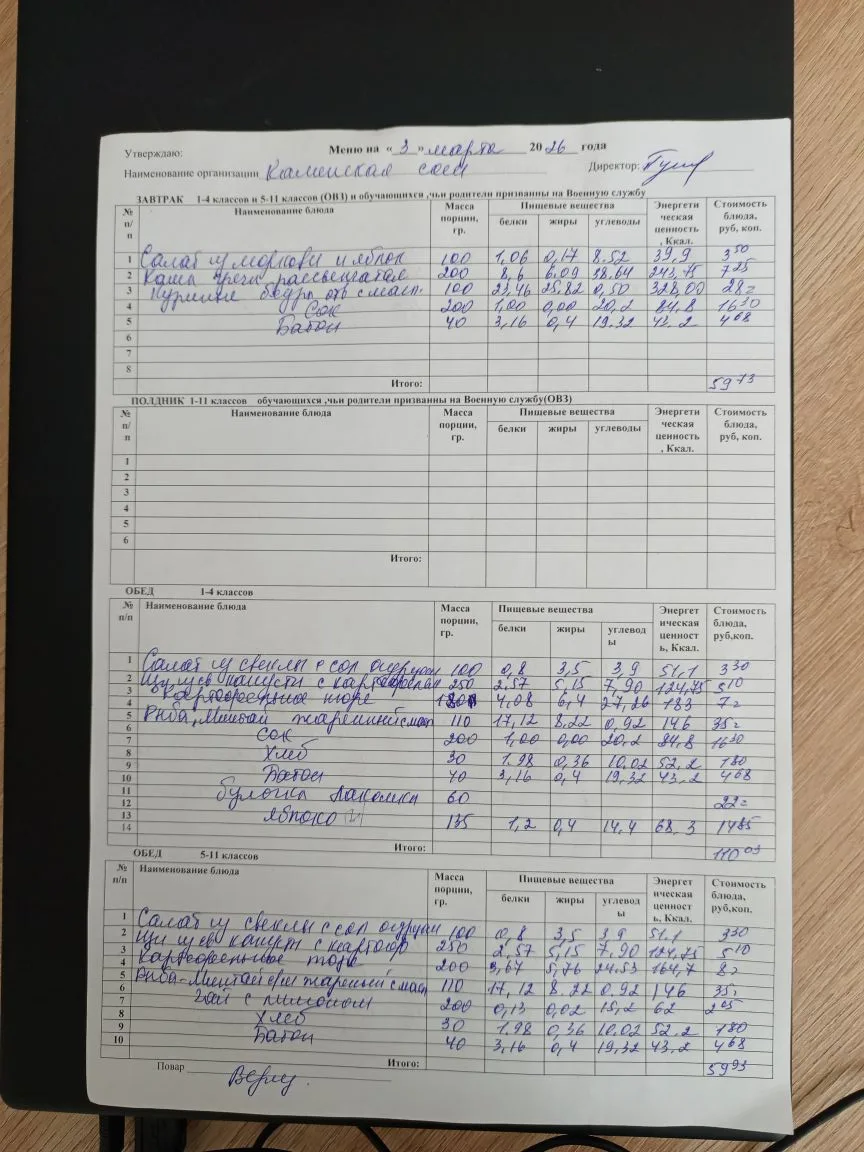 Утверждаю: Меню на « 3 » марта 2026 года
Наименование организации Каменская сош Директор:
ЗАВТРАК 1-4 классов и 5-11 классов (ОВЗ) и обучающихся ,чьи родители призванны на Военную службу
№ п/п Наименование блюда Масса порции, гр. Пищевые вещества Энергетическая ценность, Ккал. Стоимость блюда, руб, коп.
белки жиры углеводы
1 Салат из моркови и яблок 100 1,06 0,17 8.52 39,9 3 50
2 Каша греч рассыпчатая 200 8,6 6.09 38.64 243,75 7 25
3 Курин бедро отв с масл. 100 23,46 25,82 0,50 328,00 28=
4 Сок 200 1,00 0,00 20,2 84,8 16 30
5 Батон 40 3,16 0,4 19.32 43.2 4 68
6
7
8
Итого: 59 73
ПОЛДНИК 1-11 классов обучающихся ,чьи родители призванны на Военную службу(ОВЗ)
№ п/п Наименование блюда Масса порции, гр. Пищевые вещества Энергетическая ценность, Ккал. Стоимость блюда, руб, коп.
белки жиры углеводы
1
2
3
4
5
6
Итого:
ОБЕД 1-4 классов
№ п/п Наименование блюда Масса порции, гр. Пищевые вещества Энергетическая ценность, Ккал. Стоимость блюда, руб,коп.
белки жиры углеводы
1 Салат из свеклы с сол огурцом 100 0,8 3,5 3,9 51,1 3 30
2 Щи из св капусты с картофелем 250 2.57 5,15 7,90 124,75 5 10
3 Картофельное пюре 180 4,08 6,4 27,26 183 7=
4
5 Рыба, Минтай жаренный с масл 110 17,12 8.22 0,92 146 35=
6 сок 200 1,00 0,00 20,2 84,8 16 30
7
8 Хлеб 30 1.98 0,36 10.02 52,2 1 80
9
10 Батон 40 3,16 0,4 19,32 43.2 4 68
11 булочка Лакомка 60 22=
12
13 яблоко 135 1,2 0,4 14.4 68.3 14 85
14
Итого: 110 03
ОБЕД 5-11 классов
№ п/п Наименование блюда Масса порции, гр. Пищевые вещества Энергетическая ценность, Ккал. Стоимость блюда, руб,коп.
белки жиры углеводы
1 Салат из свеклы с сол огурцом 100 0,8 3,5 3,9 51.1 3 30
2 Щи из св капусты с картоф 250 2.57 5,15 7.90 124,75 5 10
3 Картофельное пюре 200 3,67 5,76 24.53 164,7 8=
4
5 Рыба-Минтай жаренный с масл 110 17,12 8.22 0,92 146 35=
6 Чай с лимоном 200 0,13 0,02 15,2 62 2 05
7
8 Хлеб 30 1.98 0,36 10.02 52.2 1 80
9 Батон 40 3,16 0,4 19,32 43.2 4 68
10
Итого: 59 93
Повар